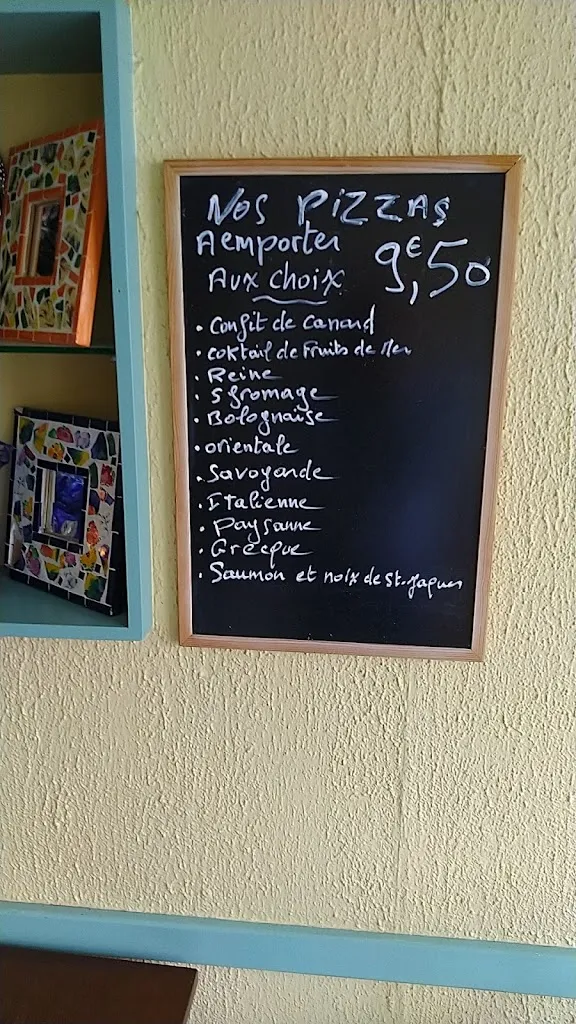 NOS PIZZAS
A emporter
AUX choix 9€,50
• Confit de Canard
• coktail de Fruits de Mer
• Reine
• 5 fromage
• Bolognaise
• orientale
• Savoyarde
• Italienne
• Paysanne
• Grecque
• Saumon et noix de St-Jaques